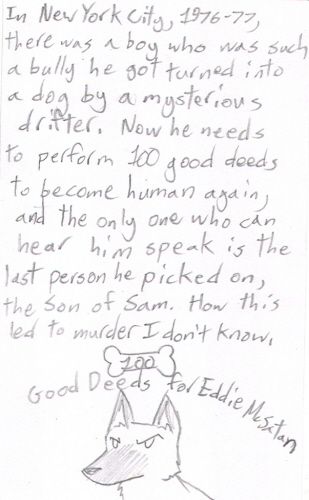 In New York City, 1976-77,
there was a boy who was such
a bully he got turned into
a dog by a mysterious
drifter. Now he needs
to perform 100 good deeds
to become human again,
and the only one who can
hear him speak is the
last person he picked on,
the Son of Sam. How this
led to murder I don't know.
100
Good Deeds for Eddie McSatan